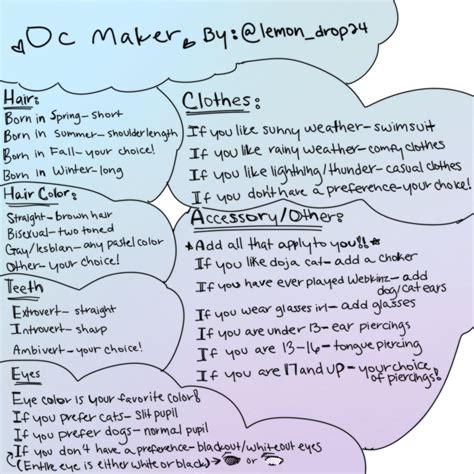 Oc Maker By: @lemon_drop24
Hair:
Born in Spring- short
Born in Summer- shoulder length
Born in Fall- your choice!
Born in Winter- long
Hair Color:
Straight- brown hair
Bisexual- two toned
Gay/lesbian- any pastel color
Other- your choice!
Teeth
Extrovert- straight
Introvert- sharp
Ambivert- your choice!
Eyes
Eye color is your favorite color!
If you prefer cats- Slit pupil
If you prefer dogs- normal pupil
If you don't have a preference- blackout/whiteout eyes
(Entire eye is either white or black)→ or
Clothes:
If you like sunny weather- swimsuit
If you like rainy weather- comfy clothes
If you like lightning/thunder- casual clothes
If you don't have a preference- your choice!
Accessory/Other:
★Add all that apply to you!!★
If you like doja cat- add a choker
If you have ever played Webkinz- add
dog/cat ears
If you wear glasses irl- add glasses
If you are under 13- ear piercings
If you are 13-16- tongue piercing
If you are 17 and up- your choice
of piercings!